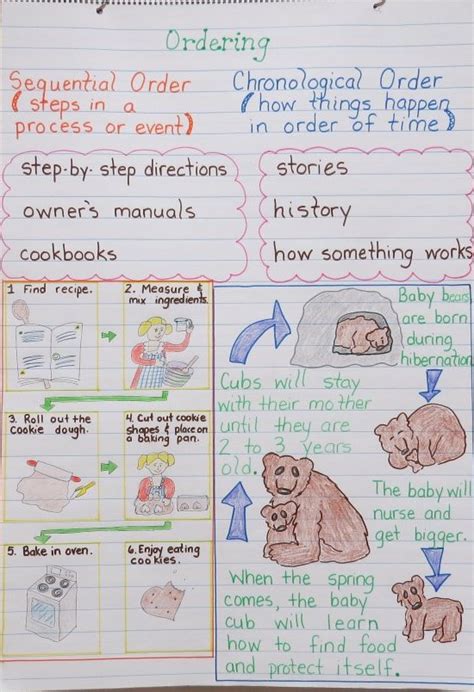 Ordering
Sequential Order
(steps in a
process or event)
Chronological Order
(how things happen
in order of time)
step-by-step directions
owner's manuals
cookbooks
stories
history
how something works
1 Find recipe.
2. Measure &
mix ingredients.
3. Roll out the
cookie dough.
4. Cut out cookie
shapes & place on
a baking pan.
5. Bake in oven.
6. Enjoy eating
cookies.
Baby bears
are born
during
hibernation
The baby will
nurse and
get bigger.
When the spring
comes, the baby
cub will learn
how to find food
and protect itself.
Cubs will stay
with their mother
until they are
2 to 3 years
old.